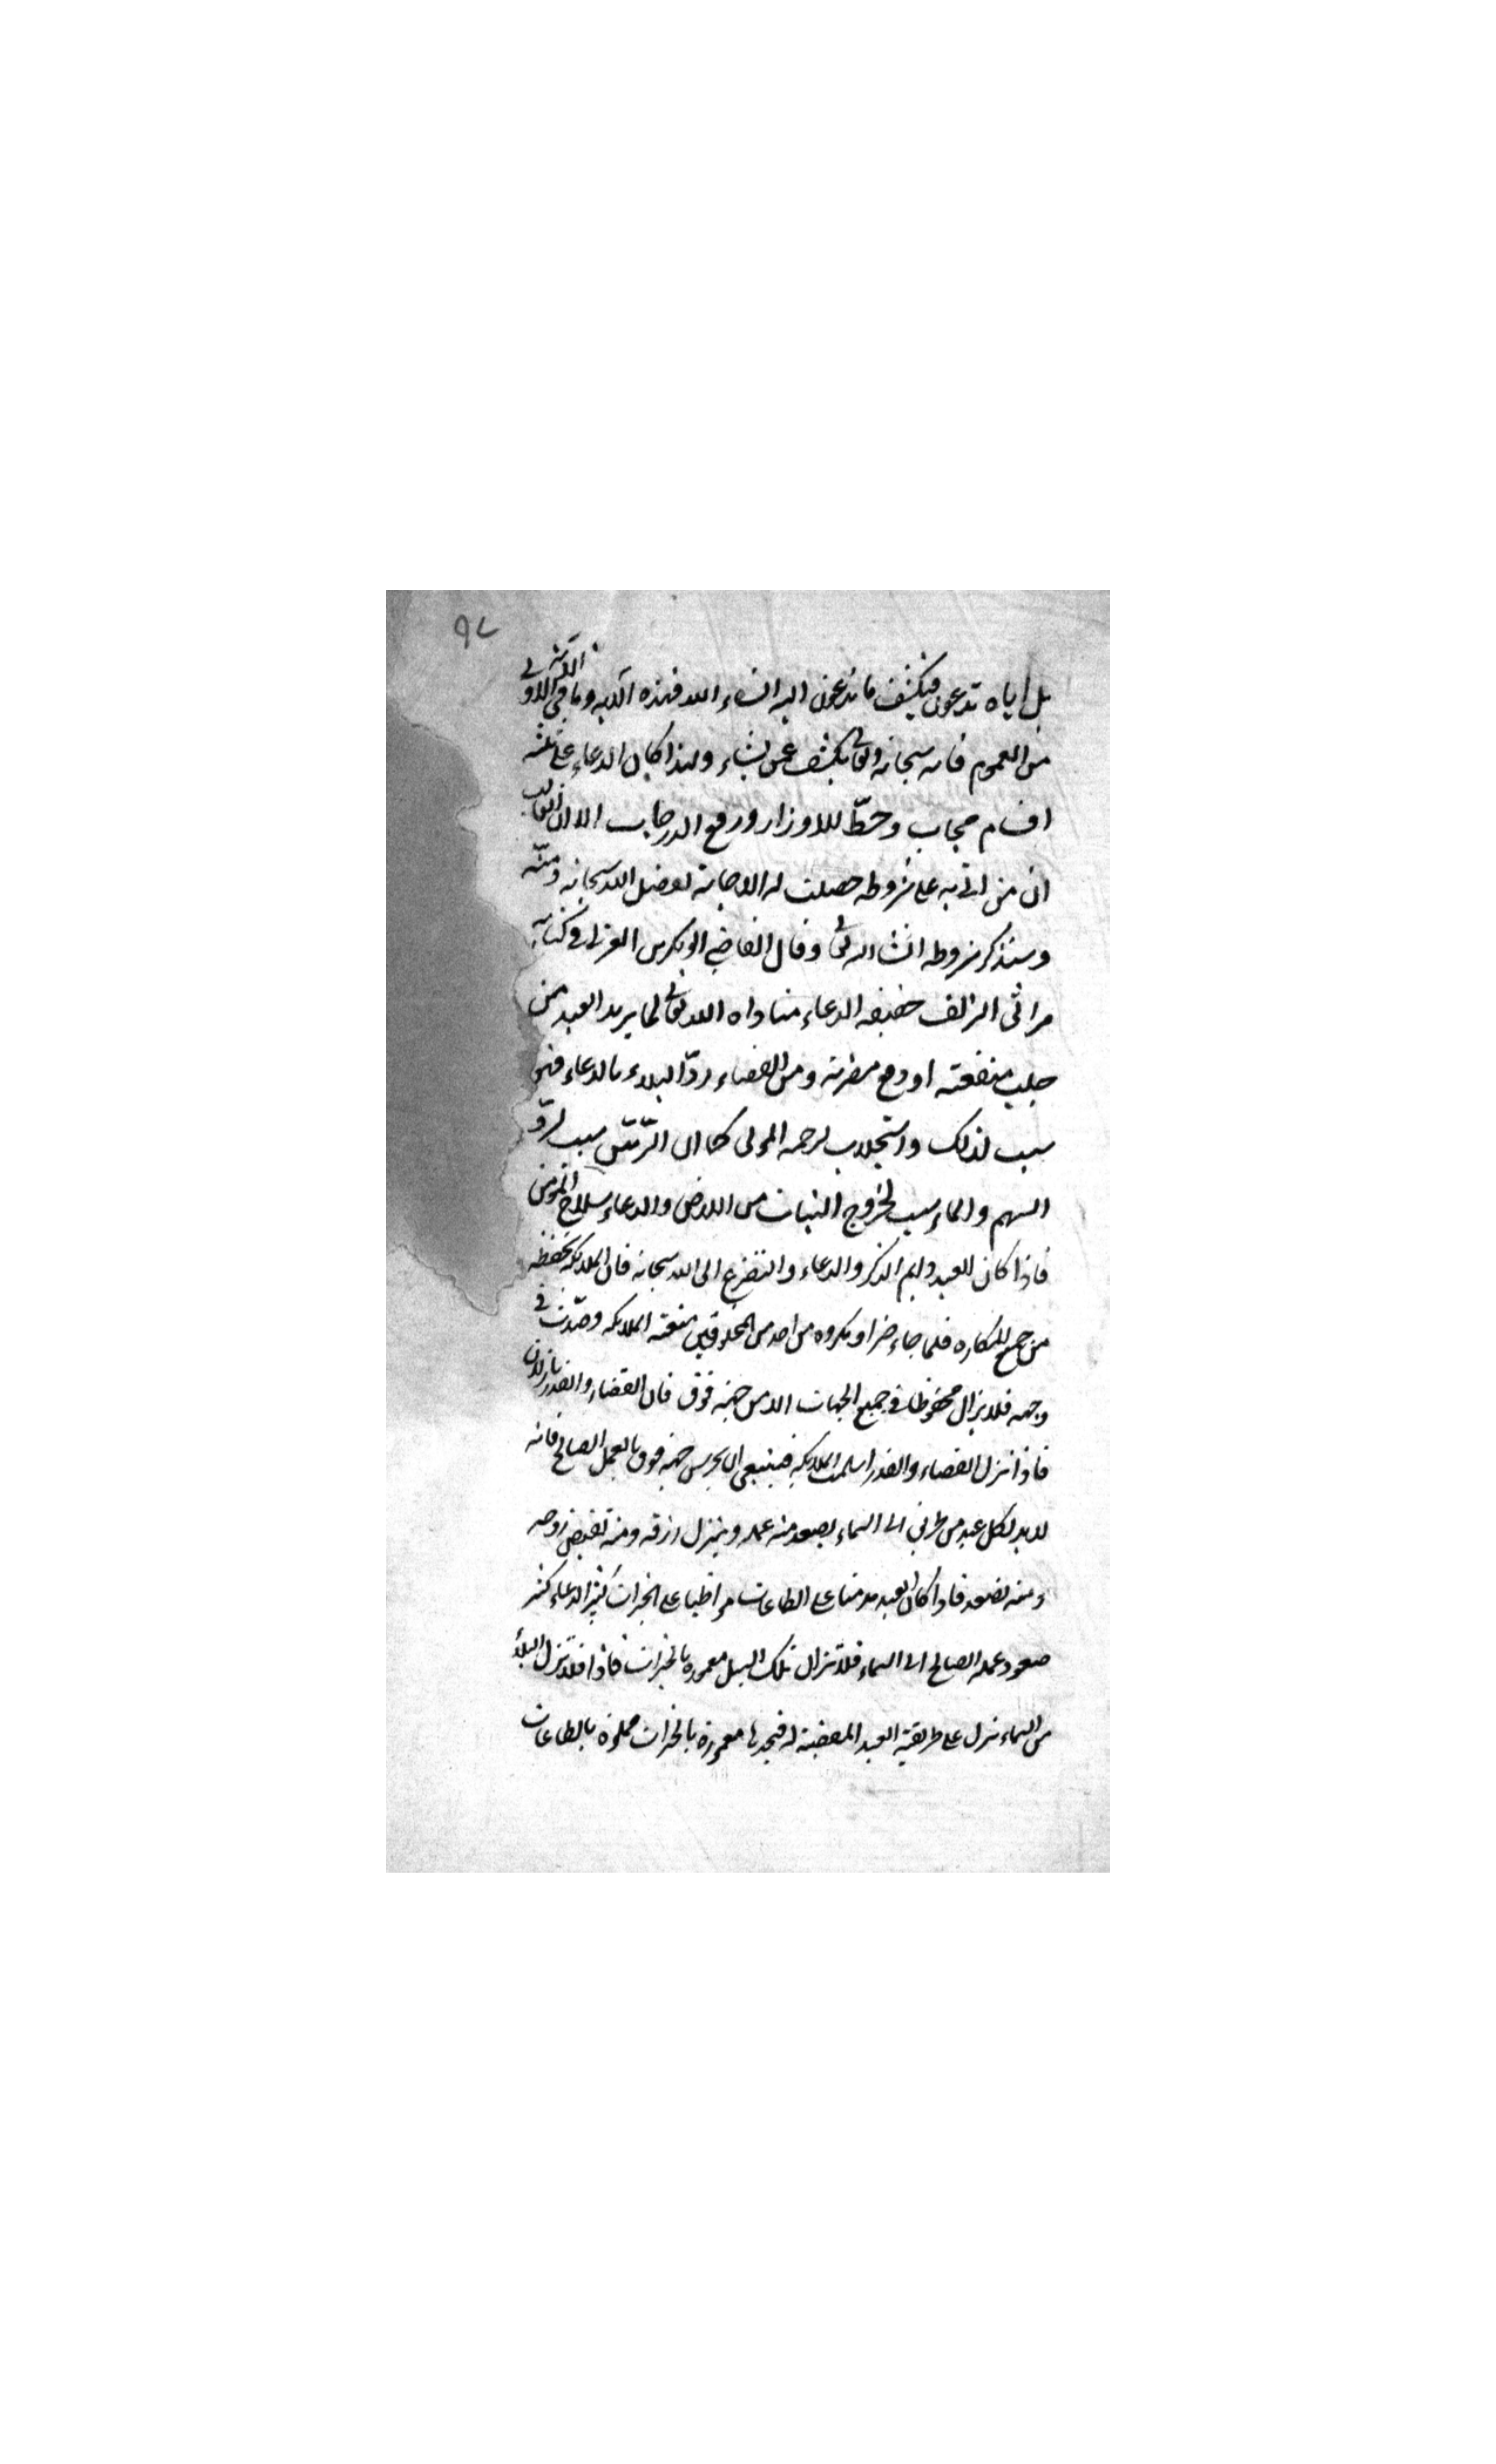 ٩٧
بل اياه تدعون فيكشف ما تدعون اليه ان شاء الله فهذه الآية وما في الاولى
من العموم فانه سبحانه وتعالى يكشف عمن يشاء ولهذا كان الدعاء على ثلثة
اقسام مجاب وحطّ للاوزار ورفع الدرجات الا ان الغالب
ان من اتى به على شروطه حصلت له الاجابة بفضل الله سبحانه ومنّه
وسنذكر شروطه انشاء الله تعالى وقال القاضي ابو بكر بن العربي في كتابه
مراقي الزلف حقيقة الدعاء مناداه الله تعالى لما يريد العبد من
جلب منفعته او دفع مضرته ومن القضاء ردّ البلاء بالدعاء فهو
سبب لذلك واستجلاب لرحمة المولى كما ان الترس سبب لردّ
السهم والماء سبب لخروج النبات من الارض والدعاء سلاح المؤمن
فاذا كان العبد دايم الذكر والدعاء والتضرع الى الله سبحانه فان الملايكة تحفظه
من جميع المكاره فلما جاء ضر او مكروه من احد من المخلوقين منعته الملايكة وصدّت في
وجهه فلا يزال محفوظا في جميع الجهات الا من جهة فوق فان القضاء والقدر نازلان
فاذا نزل القضاء والقدر اسلمت الملايكة فينبغي ان يحرس جهة فوق بالعمل الصالح فانه
لابد لكل عبد من طرق الى السماء يصعد منه عمله وينزل رزقه ومنه تقبض روحه
ومنه تصعد فاذا كان العبد مدمنا على الطاعات مواظبا على الخيرات كثير الدعاء كثر
صعود عمله الصالح الى السماء فلا تزال تلك السبل معمورة بالخيرات فاذا نزل البلاء
من السماء نزل على طريقة العبد المفضية له فيجدها معمورة بالخيرات مملوة بالطاعات